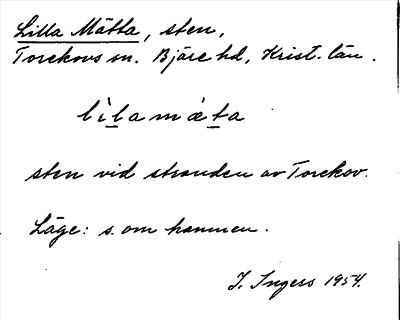 Lilla Mätta, sten,
Torekovs sn. Bjäre hd, Krist. län.
lìlamǽta
sten vid stranden av Torekov.
Läge: s. om hamnen.
I. Ingers 1954.